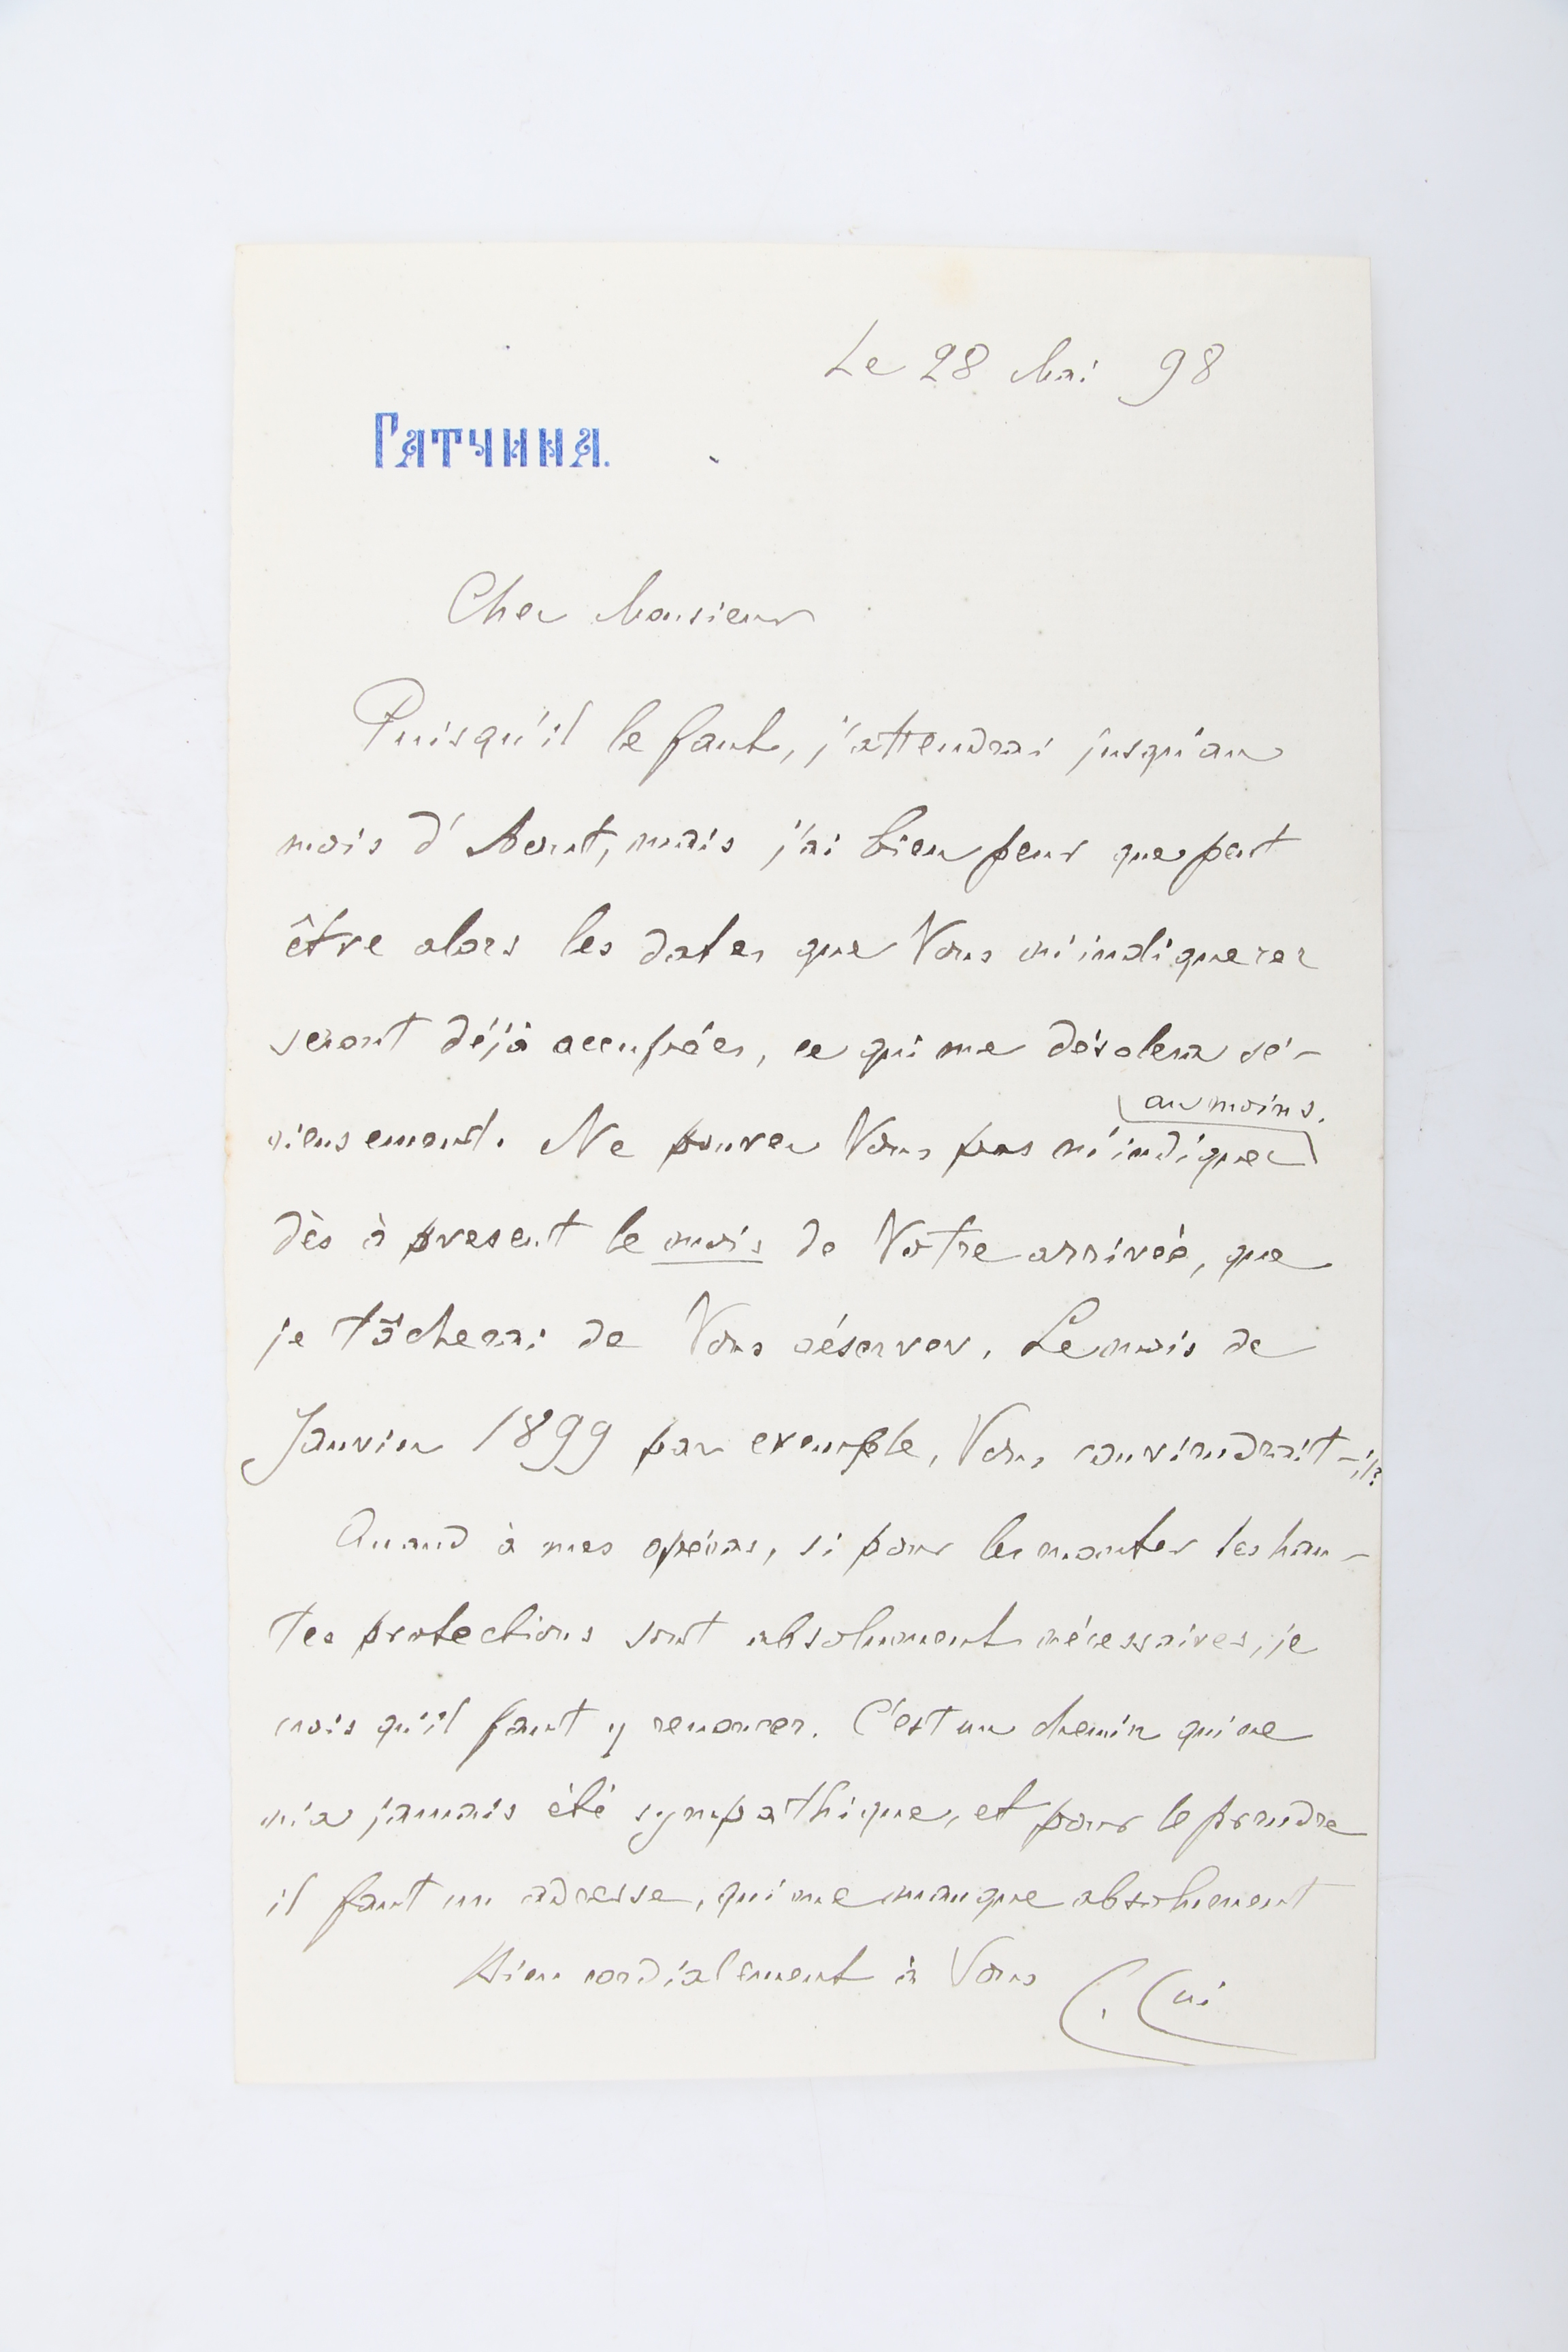 Le 28 Mai 98
Гатчина.
Cher Monsieur
Puisqu'il le faut, j'attendrai jusqu'au
mois d'Aout, mais j'ai bien peur que peut
être alors les dates que Vous m'indiquerez
seront déjà occupées, ce qui me désolera sé-
au moins.
rieusement. Ne pouvez Vous pas m'indiquer
dès à present le mois de Votre arrivée, que
je tâcherai de Vous réserver. Le mois de
Janvier 1899 par exemple, Vous conviendrait-il?
Quand à mes opéras, si pour les monter les hau-
tes protections sont absolument nécessaires, je
crois qu'il faut y renoncer. C'est un chemin qui ne
m'a jamais été sympathique, et pour le prendre
il faut un adresse, qui me manque absolument
Bien cordialement à Vous C. Cui